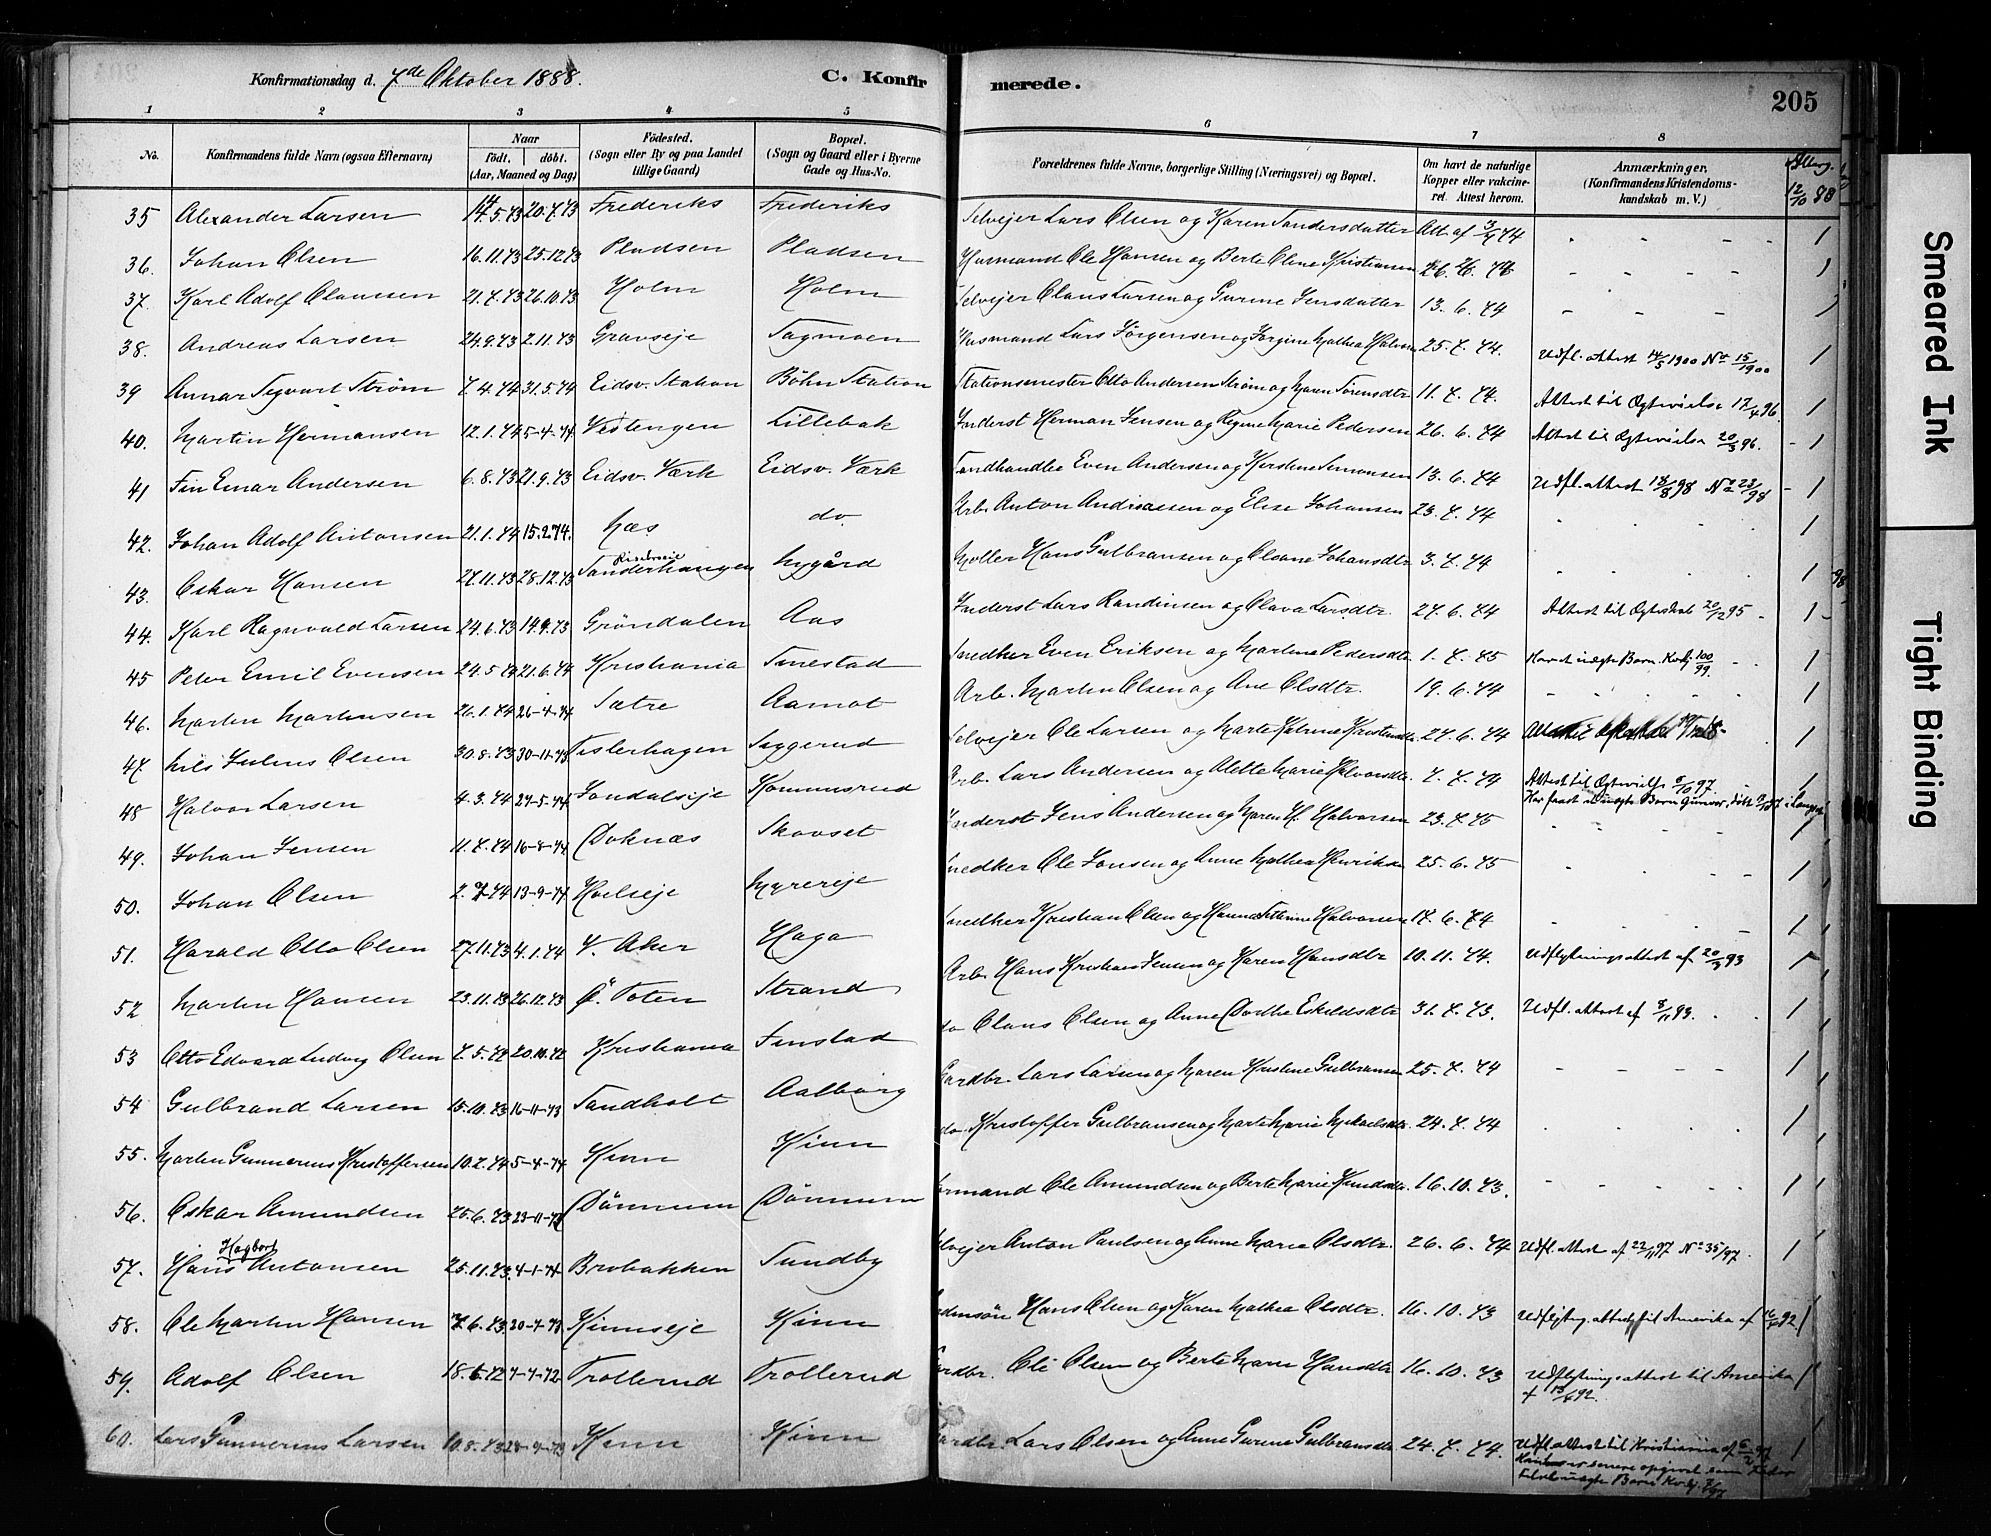 Konfirmationsdag d. 7de Oktober 1888.
C. Konfirmerede.
205
1 2 3 4 5 6 7 8
No.
Konfirmandens fulde Navn (ogsaa Efternavn)
Naar
födt. döbt.
(Aar, Maaned og Dag)
Födested.
(Sogn eller By og paa Landet tillige Gaard)
Bopæl.
(Sogn og Gaard eller i Byerne Gade og Hus-No.
Forældrenes fulde Navne, borgerlige Stilling (Næringsvei) og Bopæl.
Om havt de naturlige Kopper eller vakcineret. Attest herom.
Anmærkninger.
(Konfirmandens Kristendomskundskab m. V.)
12/10 88
35 Alexander Larsen 14.5.73 20.7.73 Frederiks Frederiks Selvejer Lars Olsen og Karen Sandersdatter Att. af 3/7 74 1
36. Johan Olsen 16.11.73 25.12.73 Pladsen Pladsen Husmand Ole Hansen og Berte Oline Kristiansen 1
37. Karl Adolf Clausen 21.7.73 26.10.73 Holm Holm Selvejer Claus Larsen og Gurine Jensdatter 13.6.74
38. Andreas Larsen 24.9.73 2.11.73 Gravseje Tagmoen Husmand Lars Jørgensen og Jørgine Mathea Halvors 25.7.74. Udfl. attest 14/5 1900 No 15/1900 1
39 Annar Sigvart Strøm 7.4.74 31.5.74 Eidsv. Station Böhn Station Stationsmester Otto Andersen Strøm og Maren Sørensdtr 11.7.74. Attest til Ægtevielse 17/4 96. 1
40. Martin Hermansen 12.1.74 5-4-74 Vestengen Lillebak Inderst Herman Jensen og Regine Marie Pedersen 26.6.74 Attest til Ægtevielse 20/3 96. 1
41 Fin Einar Andersen 6.8.73 21.9.73 Eidsv. Værk Eidsv. Værk Landhandler Even Andersen og Kirstine Simonsen 13.6.74 Udfl. attest 18/8 98 No 23/98 1
42. Johan Adolf Antonsen 21.1.74 15.2.74. Næs do. Arb. Anton Andreasen og Elise Johansen 23.7.74 1
43. Oskar Hansen 27.11.73 28.12.73 Sanderhaugen Nygård Møller Hans Gulbransen og Oleane Johansdtr 3.7.74 1
44. Karl Ragnvald Larsen 24.6.73 14.9.73 Gröndalen Aas Inderst Lars Randinsen og Olava Larsdtr. 27.6.74 Attest til Ægteskab 20/12 95. 1
45 Peter Emil Evensen 24.5.74 21.6.74 Kristiania Finstad Snedker Even Eriksen og Martine Pedersdtr 1.7.75 Har et uægte Barn. Kvkj. 100/99. 1
46. Martin Martinsen 26.1.74 26-4-74 Sætre Aamot Arb. Martin Olsen og Ane Olsdtr. 19.6.74 1
47. Nils Julius Olsen 30.8.73 30-11-73 Tislerhagen Seggerud Selvejer Ole Larsen og Marte Katrine Kristiansdtr. 27.6.74 1
48 Halvor Larsen 4.3.74 24-5-74 Sondalseje Kommisrud Arb. Lars Andersen og Alette Marie Halvorsdtr 7.7.74 Attest til Ægtevielse 8/10 97.
Har faaet uægte Barn Gunvor, döbt
49. Johan Jensen 11.7.74 16-8-74 Doknæs Skovset Inderst Jens Andersen og Maren H. Halvorsen 23.7.75
50. Johan Olsen 2.7.74 13-9-74 Hoelseje Myrereje Snedker Ole Jonsen og Anne Mathea Henriksen 25.6.75 1
51. Harald Otto Olsen 27.11.73 4.1.74 V. Aker Haga Snedker Kristian Olsen og Hanna Halvorsen 17.6.74 1
52 Martin Hansen 23.11.73 26.12.73 Ö. Toten Strand Arb. Hans Kristian Jensen og Karen Hansdtr 10.11.74. Udflytningsattest af 20/3 93
53 Otto Edvard Ludvig Olsen 7.5.72 20.10.72 Kristiania Finstad do Claus Olsen og Anne Dorthe Eskildsdtr 31.7.73. Udfl. attest af 8/11 93. 1
54 Gulbrand Larsen 15.10.73 16-11-73 Sandholt Aalborg Gardbr. Lars Larsen og Maren Kristine Gulbransen 25.7.74 1
55. Martin Gunnerius Kristoffersen 10.2.74 5-4-74 Hinn Hinn do Kristoffer Gulbransen og Marte Marie Mikaelsdtr. 24.7.74 1
56. Oskar Amundsen 25.6.73 23-11-73 Dönnum Dönnum Formand Ole Amundsen og Berte Marie Knudsdtr. 16.10.73. 1
57. Hans Hagbart Antonsen 25.11.73 4-1-74 Brobakken Sundby Selvejer Anton Paulsen og Anne Marie Olsdtr. 26.6.74 Udfl. attest af 22/11 97 No 35/97. 1
58. Ole Martin Hansen 7.6.73 20-7-73 Hinnseje Hinn Hans Olsen og Karen Mathea Olsdtr. 16.10.73 Udflytng. attest til Amerika af 16/6 92 1
59. Adolf Olsen 18.5.72 7-7-72 Trollerud Trollerud Gardbr. Ole Olsen og Berte Marie Hansdtr 16.10.73 Udflytnings attest til Amerika
af 13/4 92. 1
60. Lars Gunnerius Larsen 10.8.73 28-9-73 Hinn Hinn Gardbr. Lars Olsen og Anne Gurine Gulbransdtr 24.7.74. Udfl. attest til Kristiania af
senere opgivet som Fader
til et uægte Barn Kvkj. 1
Smeared Ink
Tight Binding